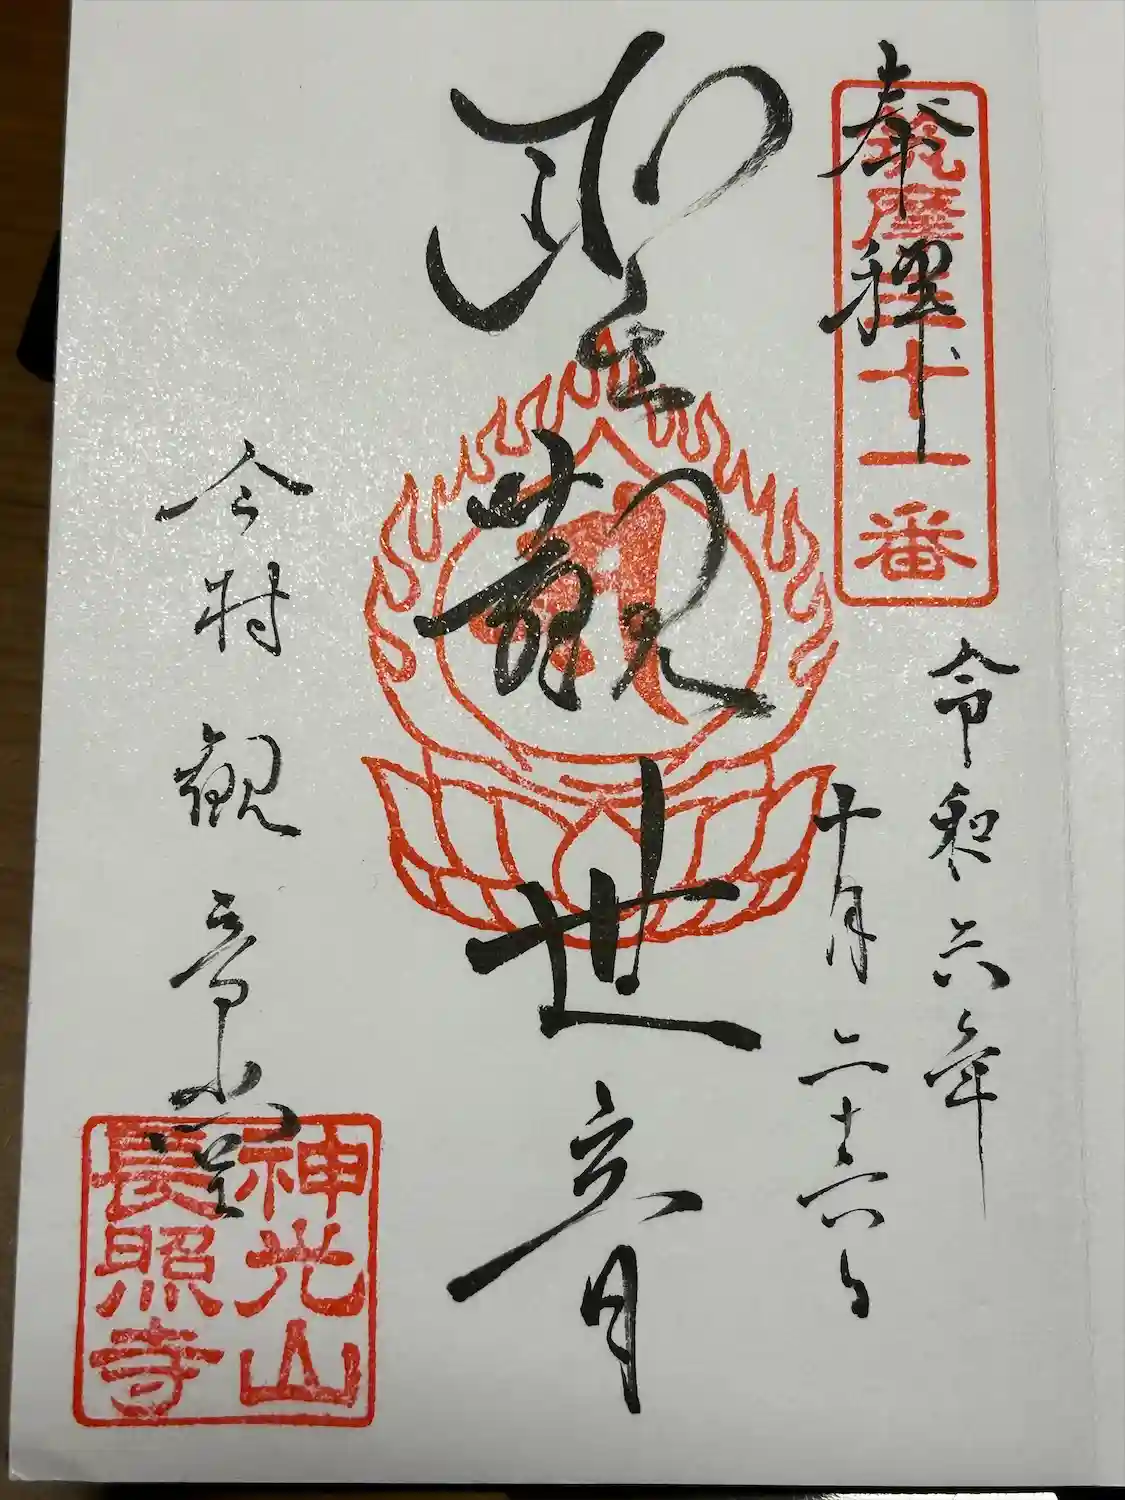 奉拝
筑摩三十一番
令和六年
十月二十六日
聖観世音
今村観音堂
神光山
長照寺